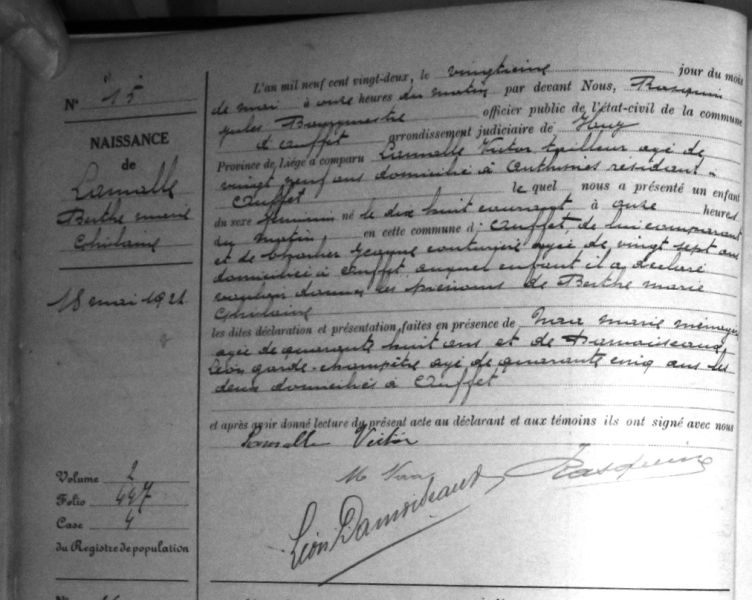 N° 15
NAISSANCE
de
Lamalle
Berthe Marie
Ghislaine
18 mai 1922
Volume 2
Folio 447
Case 4
du Registre de population
L'an mil neuf cent vingt-deux, le vingtième jour du mois
de mai à onze heures du matin par devant Nous, Rasquin
Jules Bourgmestre officier public de l'état-civil de la commune
d'Ouffet arrondissement judiciaire de Huy
Province de Liége a comparu Lamalle Victor tailleur agé de
vingt neuf ans domicilié à Anthisnes résidant à
Ouffet le quel nous a présenté un enfant
du sexe féminin né le dix huit courant à onze heures
du matin, en cette commune d'Ouffet, de lui comparant
et de Jeanne couturière agée de vingt sept ans
domiciliée à Ouffet auquel enfant il a déclaré
vouloir donner les prénoms de Berthe Marie
Ghislaine
les dites déclaration et présentation faites en présence de Marie ménagère
agée de quarante huit ans et de Damoiseaux
Léon garde-champêtre agé de quarante cinq ans les
deux domiciliés à Ouffet
et après avoir donné lecture du présent acte au déclarant et aux témoins ils ont signé avec nous
Lamalle Victor
M
Rasquin
Léon Damoiseaux